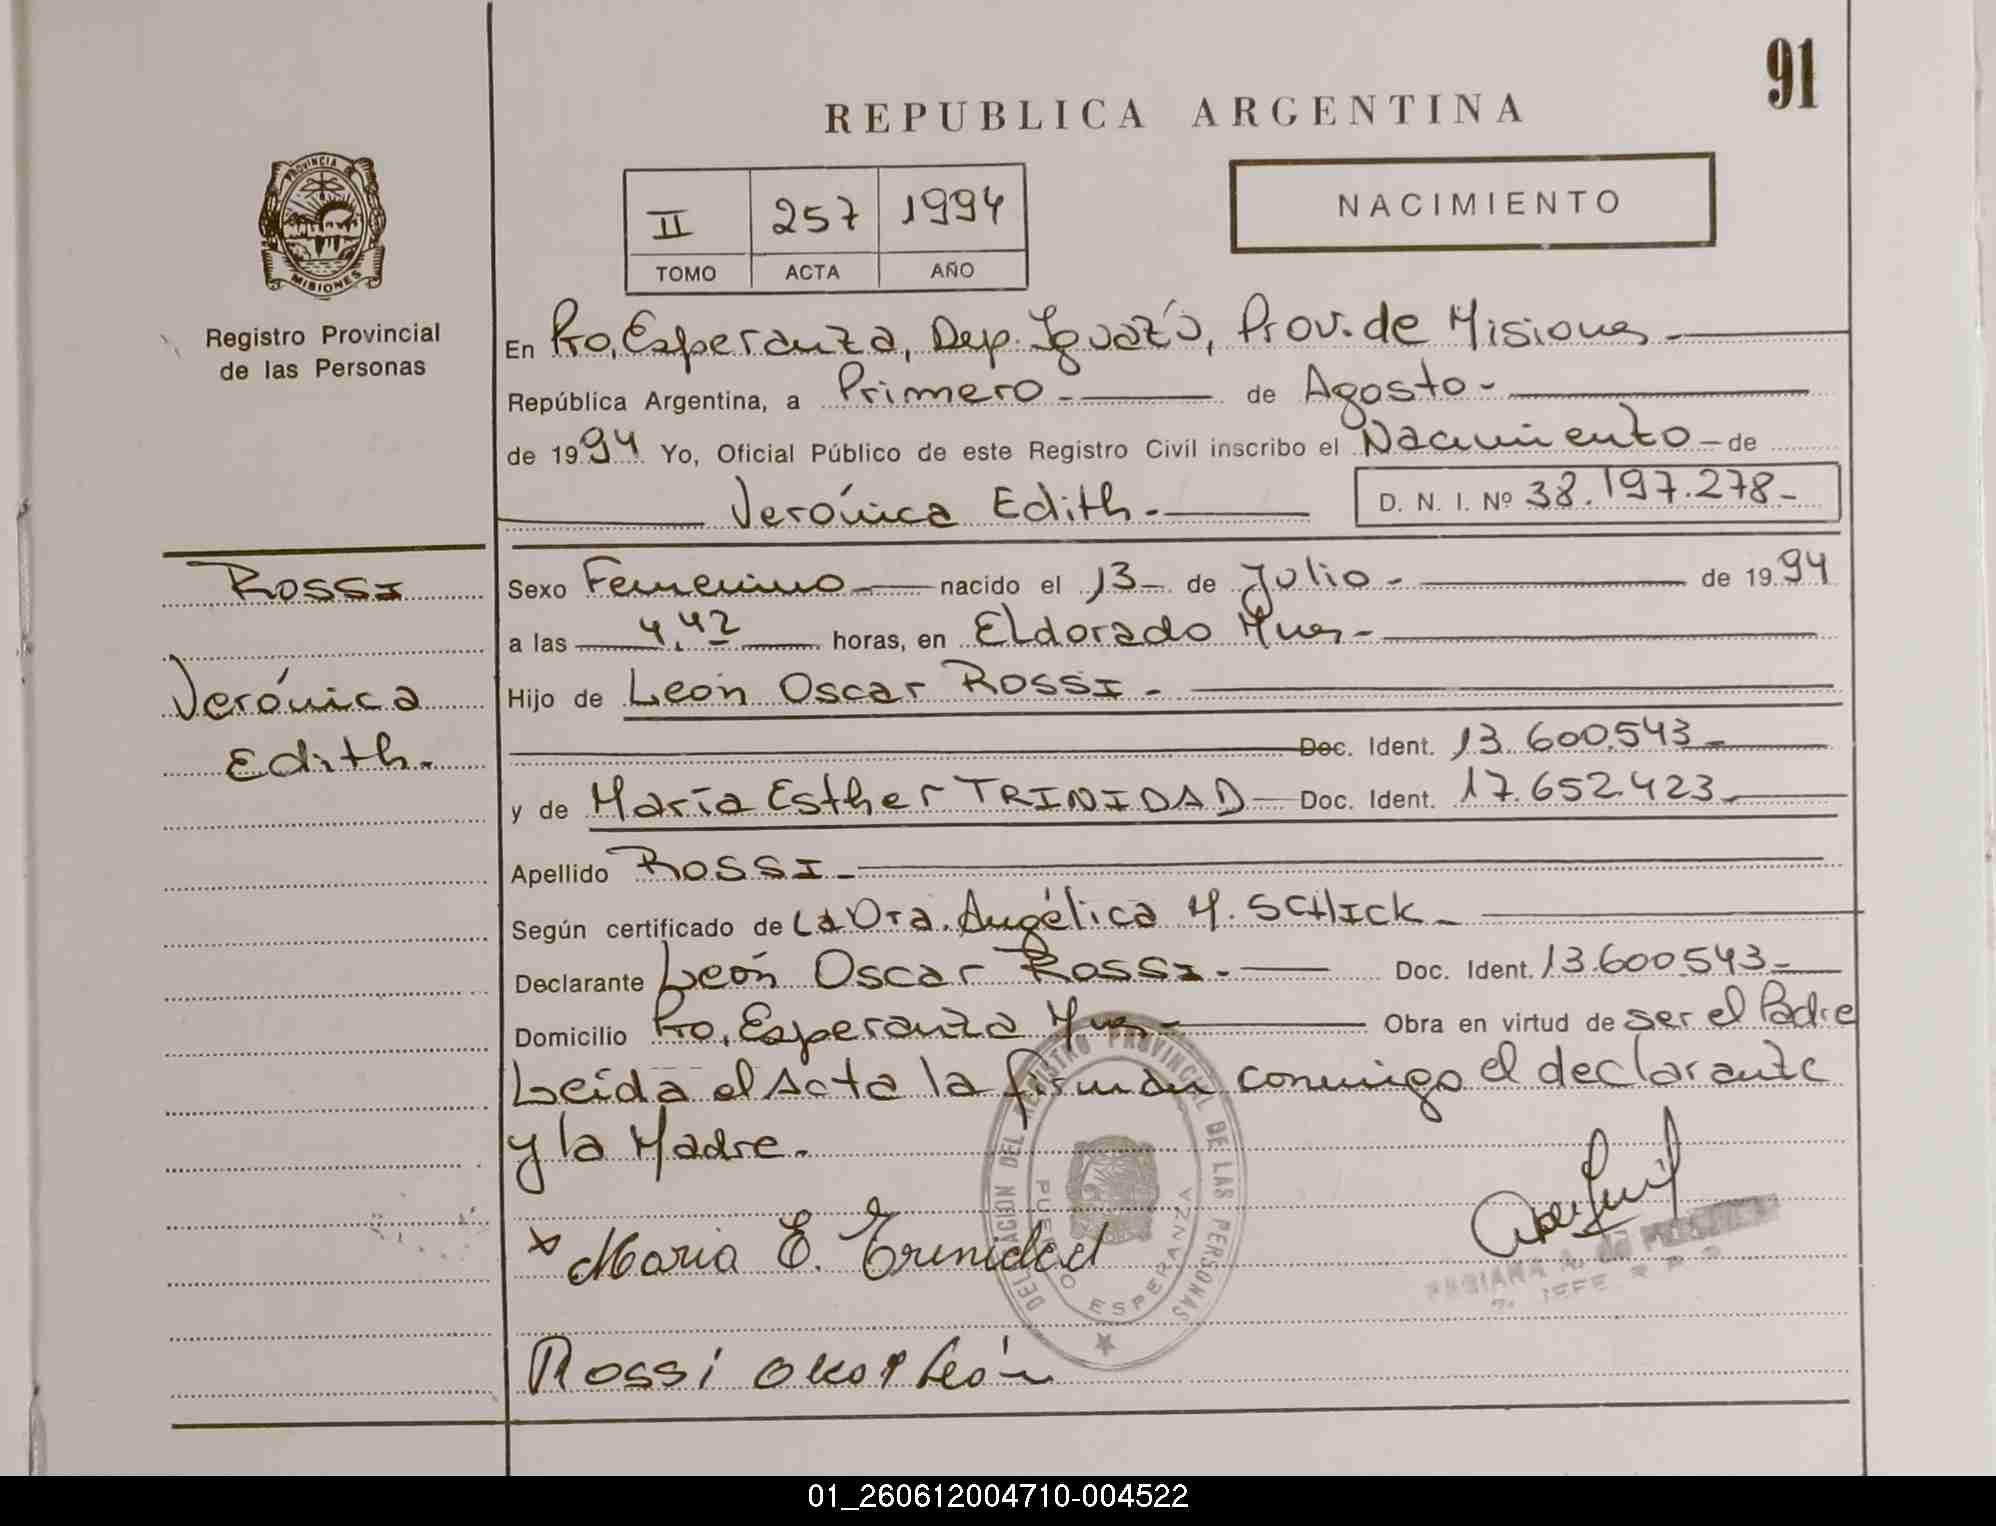 91
REPUBLICA ARGENTINA
PROVINCIA
MISIONES
II 257 1994
TOMO ACTA AÑO
NACIMIENTO
Registro Provincial
de las Personas
En Pto. Esperanza, Dep. Iguazú, Prov. de Misiones
República Argentina, a Primero de Agosto
de 1994 Yo, Oficial Público de este Registro Civil inscribo el Nacimiento de
Verónica Edith. D. N. I. Nº 38.197.278
ROSSI
Verónica
Edith.
Sexo Femenino nacido el 13 de Julio de 1994
a las 4,42 horas, en Eldorado Mnes
Hijo de León Oscar ROSSI
Doc. Ident. 13.600.543
y de María Esther TRINIDAD Doc. Ident. 17.652.423
Apellido ROSSI
Según certificado de La Dra. Angélica M. SCHICK
Declarante León Oscar ROSSI Doc. Ident. 13.600.543
Domicilio Pto. Esperanza Mnes Obra en virtud de ser el Padre
Leída el Acta la firman conmigo el declarante
y la Madre.
DELEGACION DEL REGISTRO PROVINCIAL DE LAS PERSONAS
PUERTO ESPERANZA
x Maria E. Trinidad
Rossi Oscar León
01_260612004710-004522